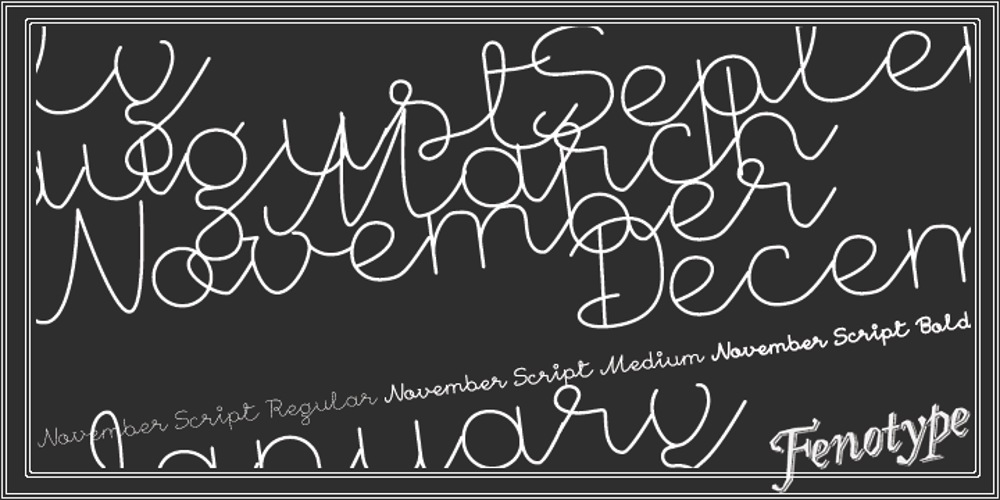 ly
ugust Septe
March
November
Decem
November Script Regular November Script Medium November Script Bold
January
Fenotype